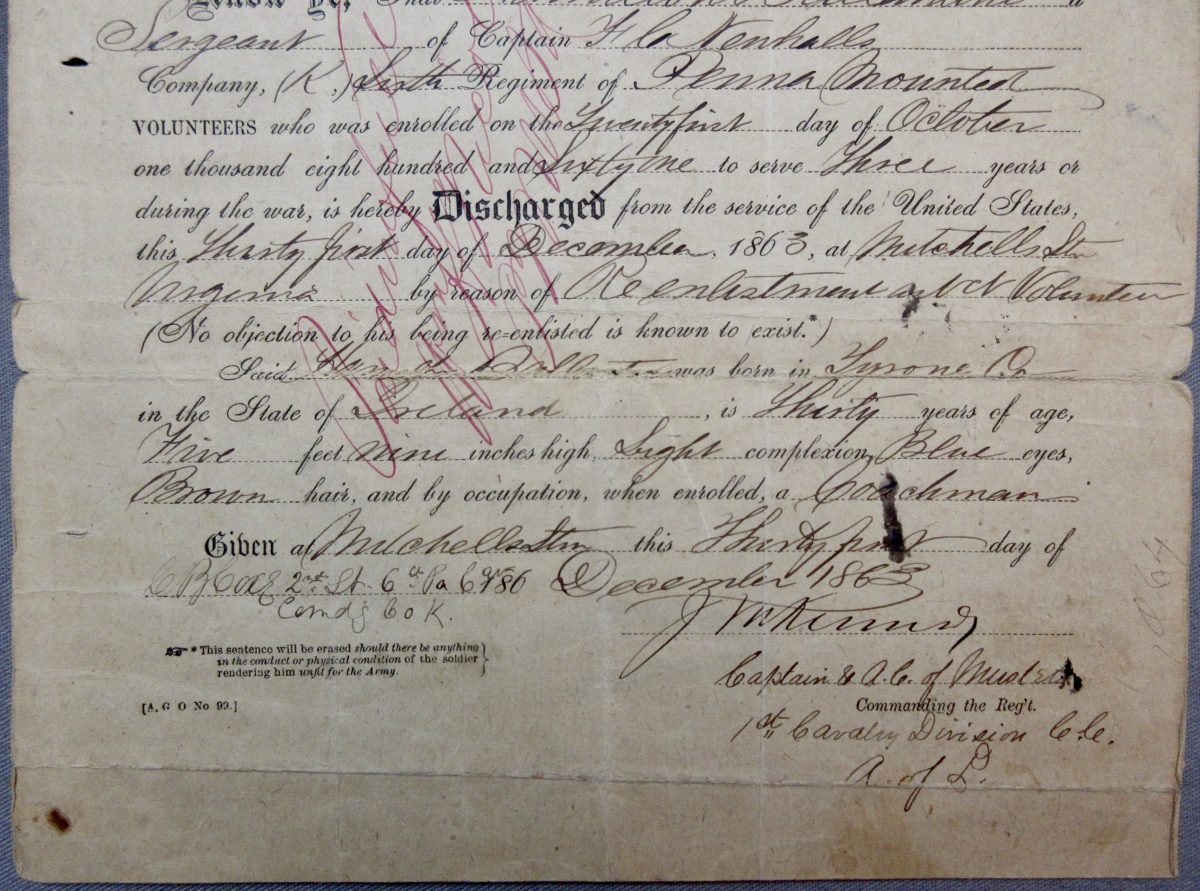 Know Ye, That a
Sergeant of Captain F C Newhalls
Company, (K,) Sixth Regiment of Penna Mounted
VOLUNTEERS who was enrolled on the Twenty first day of October
one thousand eight hundred and Sixty one to serve Three years or
during the war, is hereby Discharged from the service of the United States,
this Thirty first day of December, 1863, at Mitchells Stn
Virginia by reason of Re enlistment as Vet Volunteer
(No objection to his being re-enlisted is known to exist.*)
Said was born in Tyrone Co
in the State of Ireland, is Thirty years of age,
Five feet nine inches high, Light complexion, Blue eyes,
Brown hair, and by occupation, when enrolled, a Coachman
Given at Mitchells Stn this Thirty first day of
December 1863
2nd Lt. 6th Pa
Comdg Co K.
*This sentence will be erased should there be anything
in the conduct or physical condition of the soldier
rendering him unfit for the Army.
[A. G O No 99.]
Captain & A.C. of Musters
Commanding the Reg't.
1st Cavalry Division C.C.
A. of P.